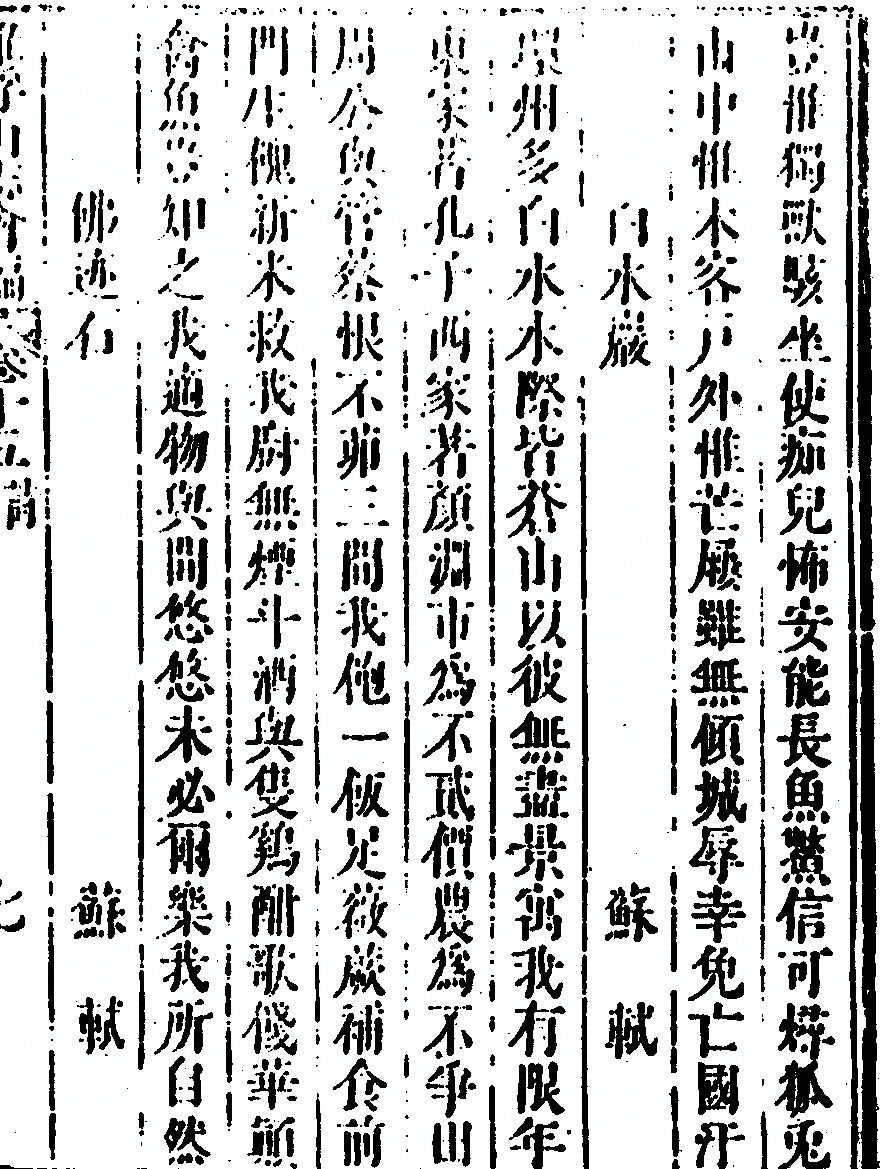 豈惟獨獸駭坐使痴兒怖安能長魚鱉信可燖狐兎
山中惟木客戸外惟芒屩雖無傾城辱幸免亡國汙
白水巖 蘇軾
環州多白水水際皆蒼山以彼無盡景寓我有限年
東家著孔子西家著顔淵市爲不貳價農爲不爭田
周公與管蔡恨不茆三間我飽一飯足薇蕨補食前
門生餽新米救我厨無煙斗酒與隻鷄酣歌餞華顛
禽魚豈知之我適物與閒悠悠未必爾樂我所自然
佛迹石 蘇軾